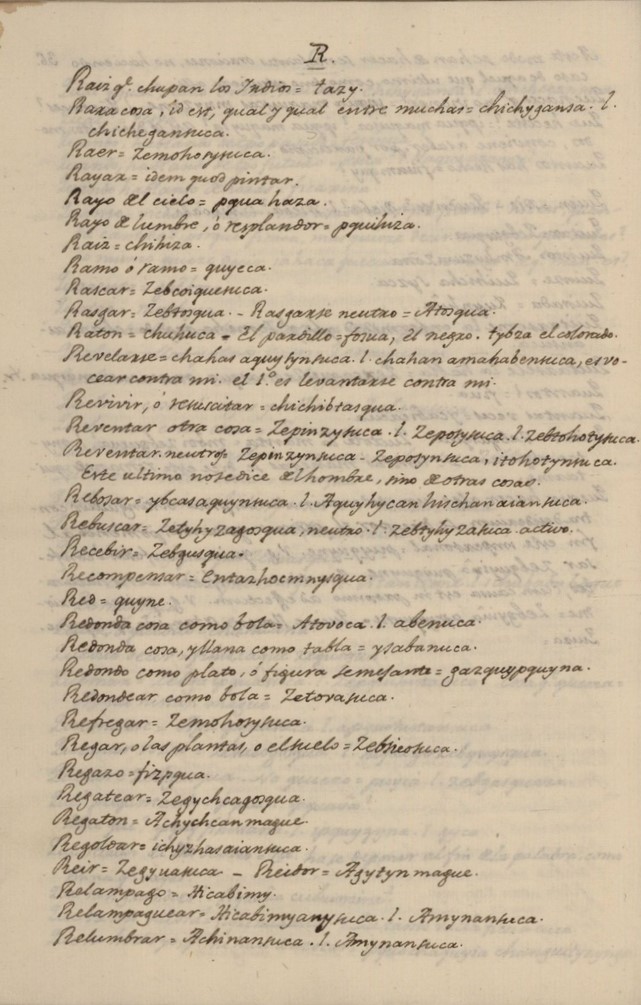 R.
Raiz q.e chupan los Indios = tazy.
Rara cosa, id est, qual y qual entre muchas = chichygansa. l.
chichegansuca.
Raer = Zemohosysuca.
Rayar = idem quod pintar.
Rayo del cielo = pquahaza.
Rayo de lumbre, ó resplandor = pquihiza.
Raiz = chihiza.
Ramo ó ramo = quyeca.
Rascar = Zebcoiquesuca.
Rasgar = Zebtosqua. - Rasgarse neutro = Atosqua.
Raton = chuhuca - El pardillo = fosua, el negro. tybza el colorado.
Revelarse = chahas aguysynsuca. l. chahan amahabensuca, es vo-
cear contra mi. el 1.o es levantarse contra mi.
Revivir, ó resuscitar = chichibtasqua.
Reventar otra cosa = Zepinzysuca. l. Zeposysuca. l. zebtohotysuca.
Reventar. neutro = Zepinzynsuca - Zeposynsuca, itohotynsuca.
Este ultimo nosedice del hombre, sino de otras cosas.
Rebosar = ybcasaquynsuca. l. Aguyhycan hischanaiansuca.
Rebuscar = Zetyhyzagosqua, neutro. l. zebtyhyzasuca. activo.
Recebir = Zebgusqua.
Recompensar = Entazhocmnysqua.
Red = quyne.
Redonda cosa como bola = Atovoca. l. abenuca.
Redonda cosa, y llana como tabla = ysabanuca.
Redondo como plato, ó figura semejante = gazquypquyna.
Redondear como bola = Zetovasuca.
Refregar = Zemohosysuca.
Regar, o las plantas, o el suelo = Zebsieosuca.
Regazo = fizpqua.
Regatear = Zegychcagosqua.
Regaton = Achychcan mague.
Regoldar = ichyzhasaiansuca.
Reir = Zegyuasuca - Reidor = Agytyn mague.
Relampago = Hicabimy.
Relampaguear = Hicabimyanysuca. l. Amynansuca.
Relumbrar = Achinansuca. l. Amynansuca.